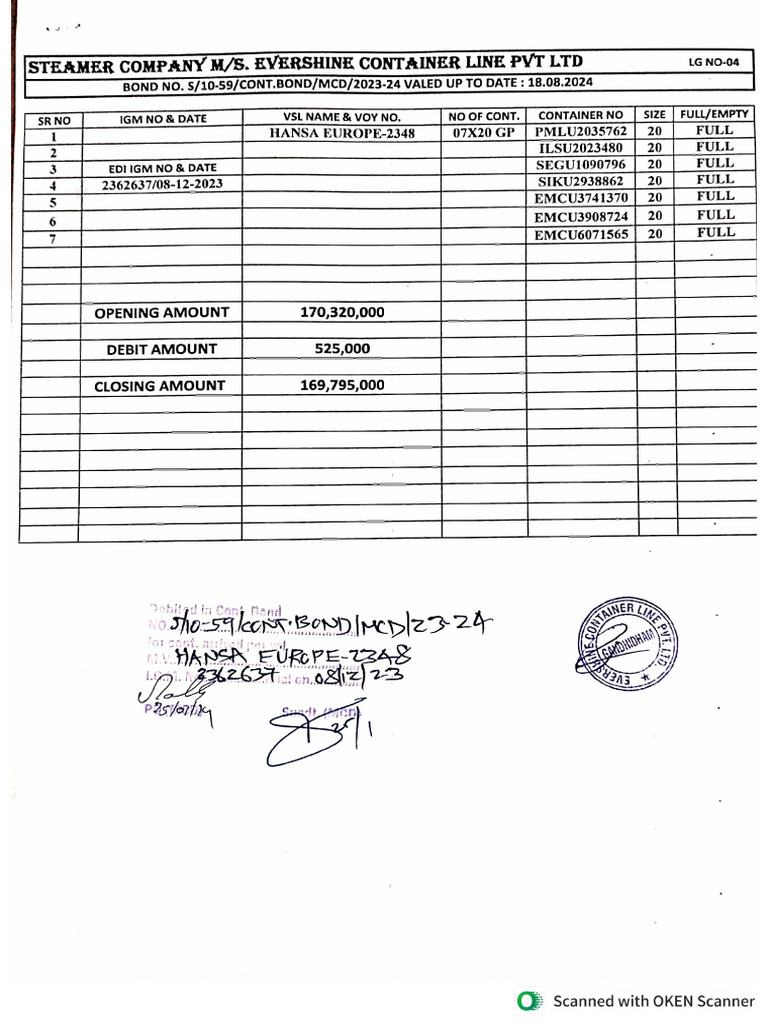 STEAMER COMPANY M/S. EVERSHINE CONTAINER LINE PVT LTD LG NO-04
BOND NO. S/10-59/CONT.BOND/MCD/2023-24 VALED UP TO DATE : 18.08.2024
SR NO IGM NO & DATE VSL NAME & VOY NO. NO OF CONT. CONTAINER NO SIZE FULL/EMPTY
1 HANSA EUROPE-2348 07X20 GP PMLU2035762 20 FULL
2 ILSU2023480 20 FULL
3 EDI IGM NO & DATE SEGU1090796 20 FULL
4 2362637/08-12-2023 SIKU2938862 20 FULL
5 EMCU3741370 20 FULL
6 EMCU3908724 20 FULL
7 EMCU6071565 20 FULL
OPENING AMOUNT 170,320,000
DEBIT AMOUNT 525,000
CLOSING AMOUNT 169,795,000
Debited in Cont. Bond
NO. S/10-59/CONT.BOND/MCD/23-24
for cont. arrived per vsl
M.V. HANSA EUROPE-2348
2362637 on 08/12/23
25/01/24
Supdt (MCD)
25/1
EVERSHINE CONTAINER LINE PVT. LTD.
GANDHIDHAM
Scanned with OKEN Scanner